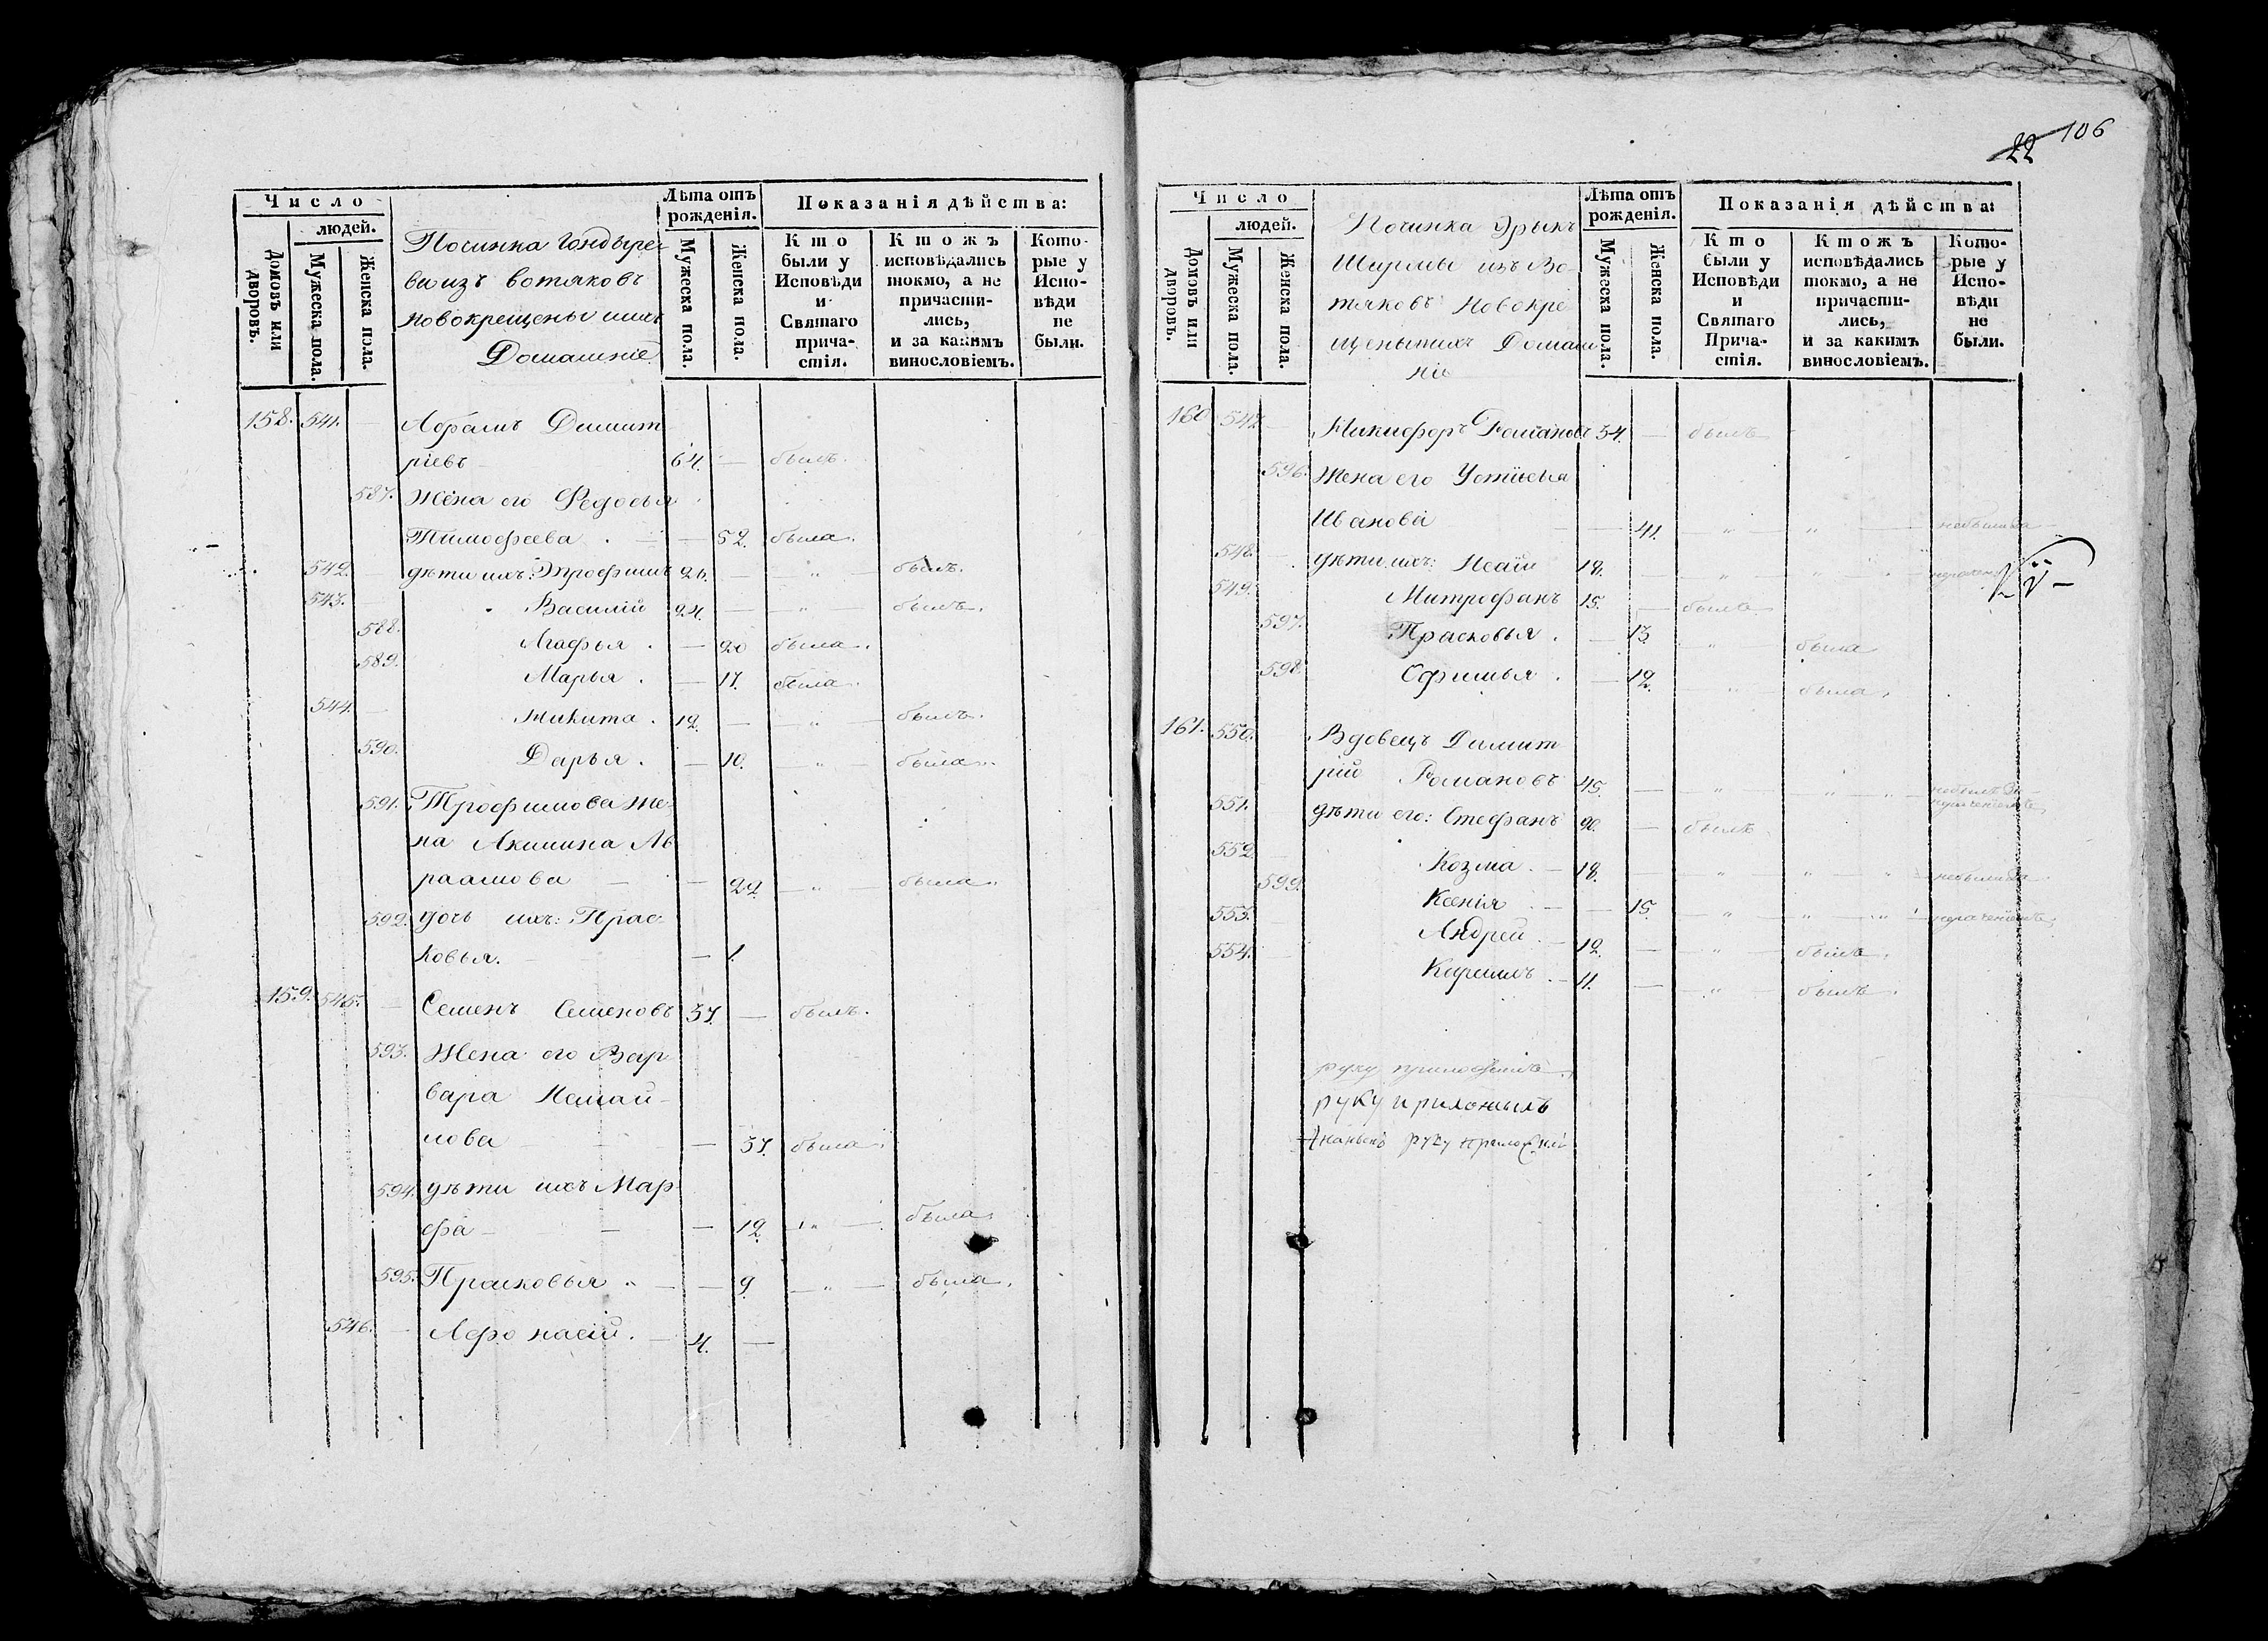 106
22
Число
людей.
Домовъ или дворовъ.
Мужеска пола.
Женска пола.
Починка Гондыре
ва изъ вотяковъ
новокрещены ихъ
Домашніе
Лѣта отъ рожденія.
Мужеска пола.
Женска пола.
Показанія дѣйства:
Кто были у Исповѣди и Святаго прича-стія.
Ктожъ исповѣдались токмо, а не причасти-лись, и за какимъ винословіемъ.
Кото-рые у Испо-вѣди не были.
158. 541. Абрамъ Димит
ріевъ 64. — былъ.
587. Жена его Федосья
Тимофеева . — 52. была.
542. дѣти ихъ: Трофимъ 26. — „ былъ.
543. Василій 24. — „ былъ.
588. Агафья . — 20 была.
589. Марья . — 17. была.
544. Никита . 12. — „ былъ.
590. Дарья . — 10. — „ — была.
591. Трофимова же
на Акилина Аб
рамова — 22. — „ — была.
592. дочь ихъ: Прас
ковья. — 1.
159. 545. Семенъ Семеновъ 37. — былъ.
593. Жена его Вар
вара
лова — 37. была.
594. дѣти ихъ Мар
фа — 12. „ — была.
595. Прасковья „ — 9 — „ — была.
546. Афонасій. — 4. —
Число
людей.
Домовъ или дворовъ.
Мужеска пола.
Женска пола.
Починка Урыкъ
Шурмы изъ Во
тяковъ Новокре
щены ихъ Домаш
ніе
Лѣта отъ рожденія.
Мужеска пола.
Женска пола.
Показанія дѣйства:
Кто были у Исповѣди и Святаго Прича-стія.
Ктожъ исповѣдались токмо, а не причасти-лись, и за какимъ винословіемъ.
Кото-рые у Испо-вѣди не были.
160 547. Никифоръ Романовъ 54. — былъ
596. Жена его Устинья
Иванова — 41. „ „ небыла
548. дѣти ихъ: Исаiй 18. — „ „
549. Митрофанъ 15. — былъ
597. Прасковья . — 13. „ была
598. Офимья . — 12. „ была.
161. 550. Вдовецъ Димит
рій Романовъ 45. — „ „ небылъ
551. дѣти его: Стефанъ 20. — былъ
552. Козма . — 18. „ „
599. Ксенія . — 15. „ „
553. Андрей . 12. — „ былъ.
554. Кирилъ . 11. — „ былъ.
руку приложилъ.
руку приложилъ
руку приложилъ